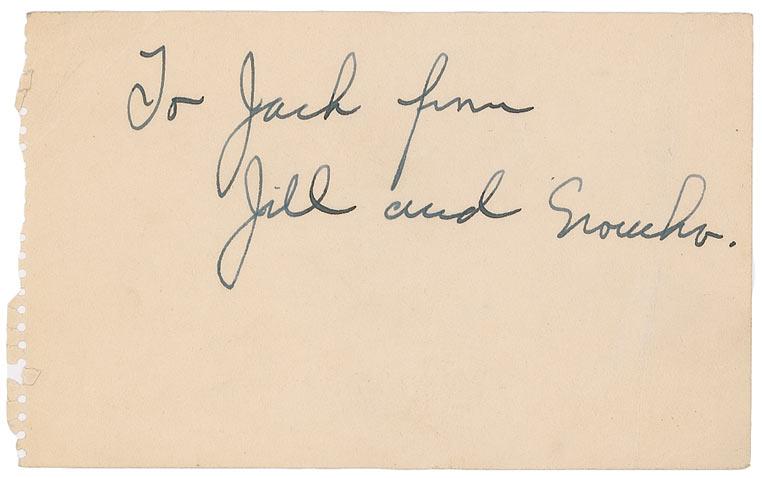 To Jack from
Jill and Groucho.